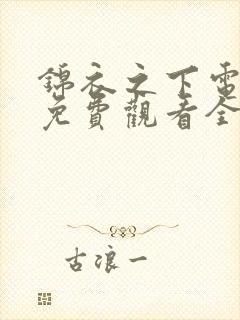 錦衣之下電
免費觀看全
古浪一